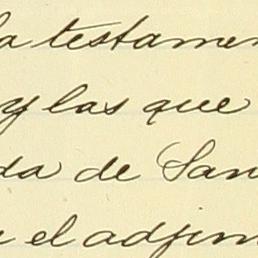 la testamen
y las que
da de San
el adjun